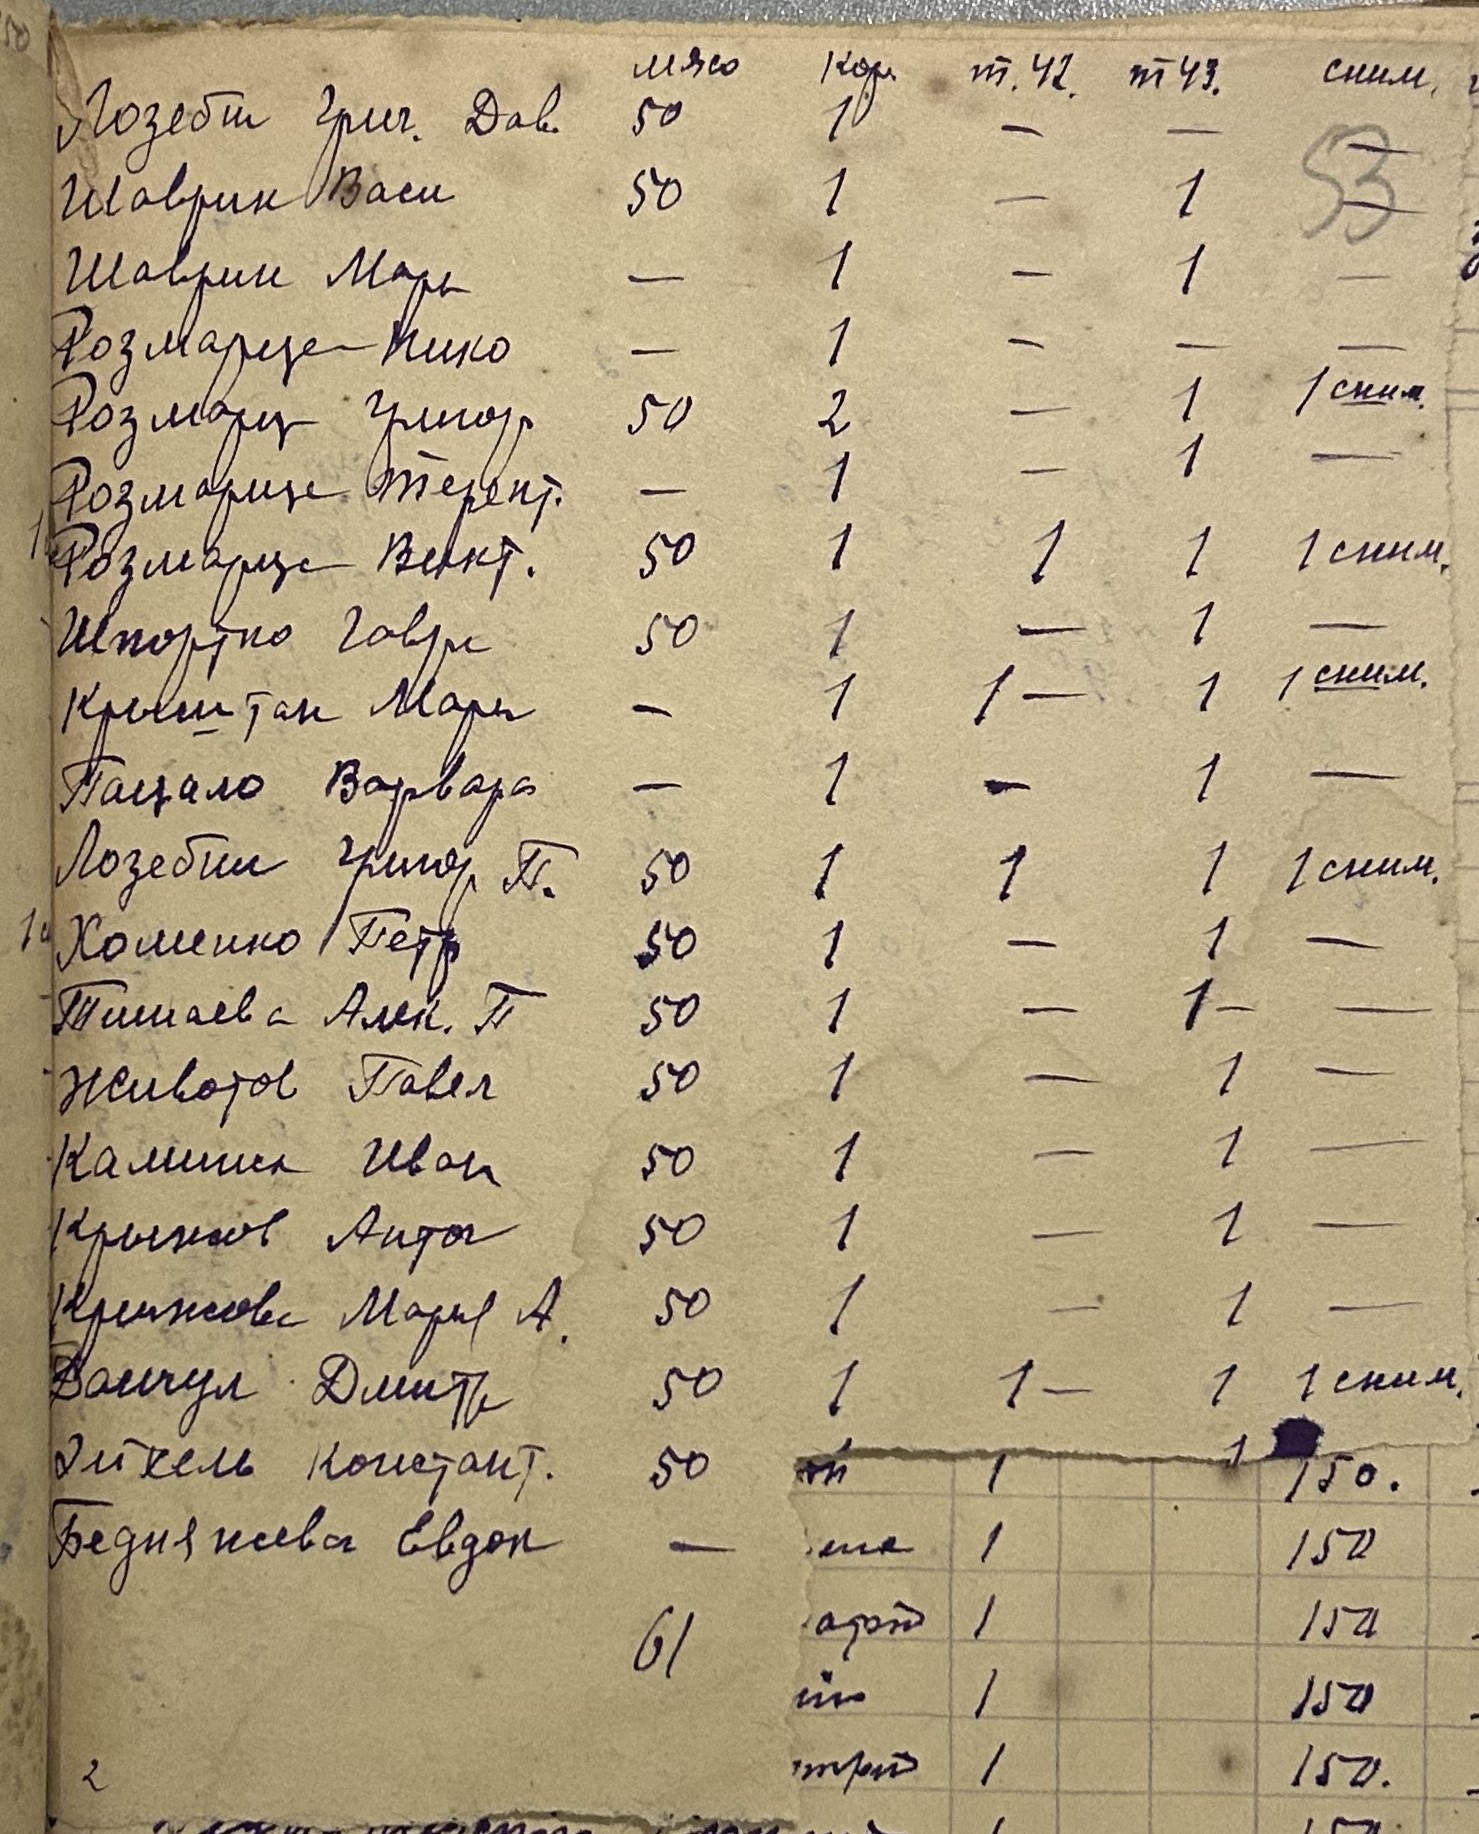 мясо кор. т.42. т43. сним.
Лозебт Григ. Дав. 50 1 — — —
53
Шаврин Васи 50 1 — 1 —
Шаврин Мари — 1 — 1 —
Розмарце Нико — 1 — — —
Розмарц Григор 50 2 — 1 1 сним.
Розмарце Терент. — 1 — 1 —
Розмарце Викт. 50 1 1 1 1 сним.
Шпортко Гаври 50 1 — 1 —
Крыштан Мари — 1 1 — 1 1 сним.
Пацало Варвара — 1 — 1 —
Лозебти Григор П. 50 1 1 1 1 сним.
Хоменко Петр 50 1 — 1 —
Тимаева Алек. П 50 1 — 1 — —
Животов Павел 50 1 — 1 —
Камински Иван 50 1 — 1 —
Крыжов Антон 50 1 — 1 —
Крыжова Мария А. 50 1 — 1 —
Ванчул Дмитр 50 1 1 — 1 1 сним.
Эйхель Констант. 50 1 1
1 150.
Бедняжева Евдок —
1 150
1 150
61
1 150
1 150.
2